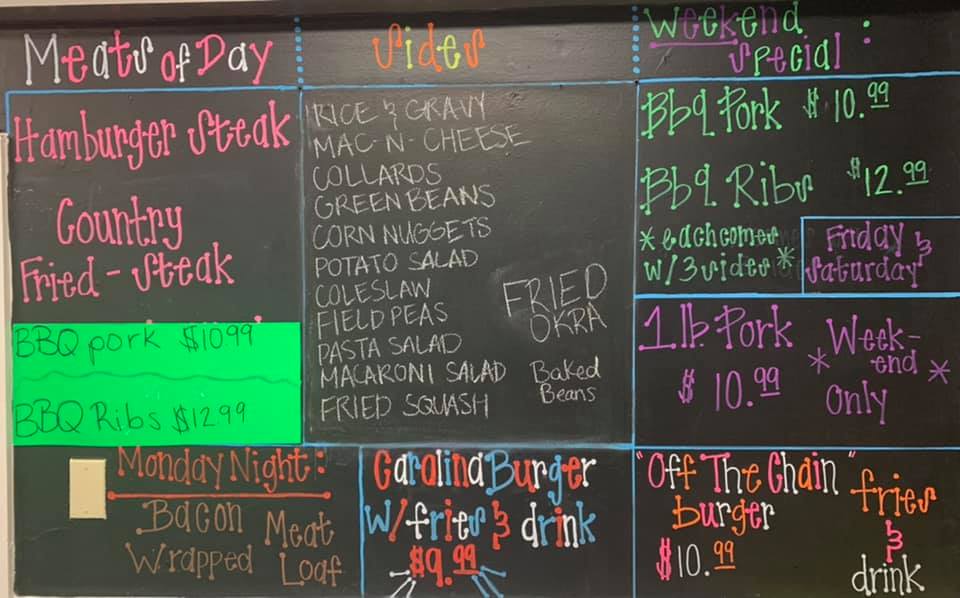 Meats of Day
Hamburger Steak
Country
Fried - Steak
BBQ pork $10.99
BBQ Ribs $12.99
Sides
RICE & GRAVY
MAC-N-CHEESE
COLLARDS
GREEN BEANS
CORN NUGGETS
POTATO SALAD
COLESLAW
FIELD PEAS
PASTA SALAD
MACARONI SALAD
FRIED SQUASH
FRIED
OKRA
Baked
Beans
Weekend
Special :
Bbq Pork $10.99
Bbq Ribs $12.99
*each comes
w/3 sides*
Friday &
Saturday
1 lb. Pork
$10.99
*Week-
end*
Only
Monday Night:
Bacon
Wrapped
Meat
Loaf
Carolina Burger
w/fries & drink
$9.99
"Off The Chain"
burger
$10.99
fries
&
drink